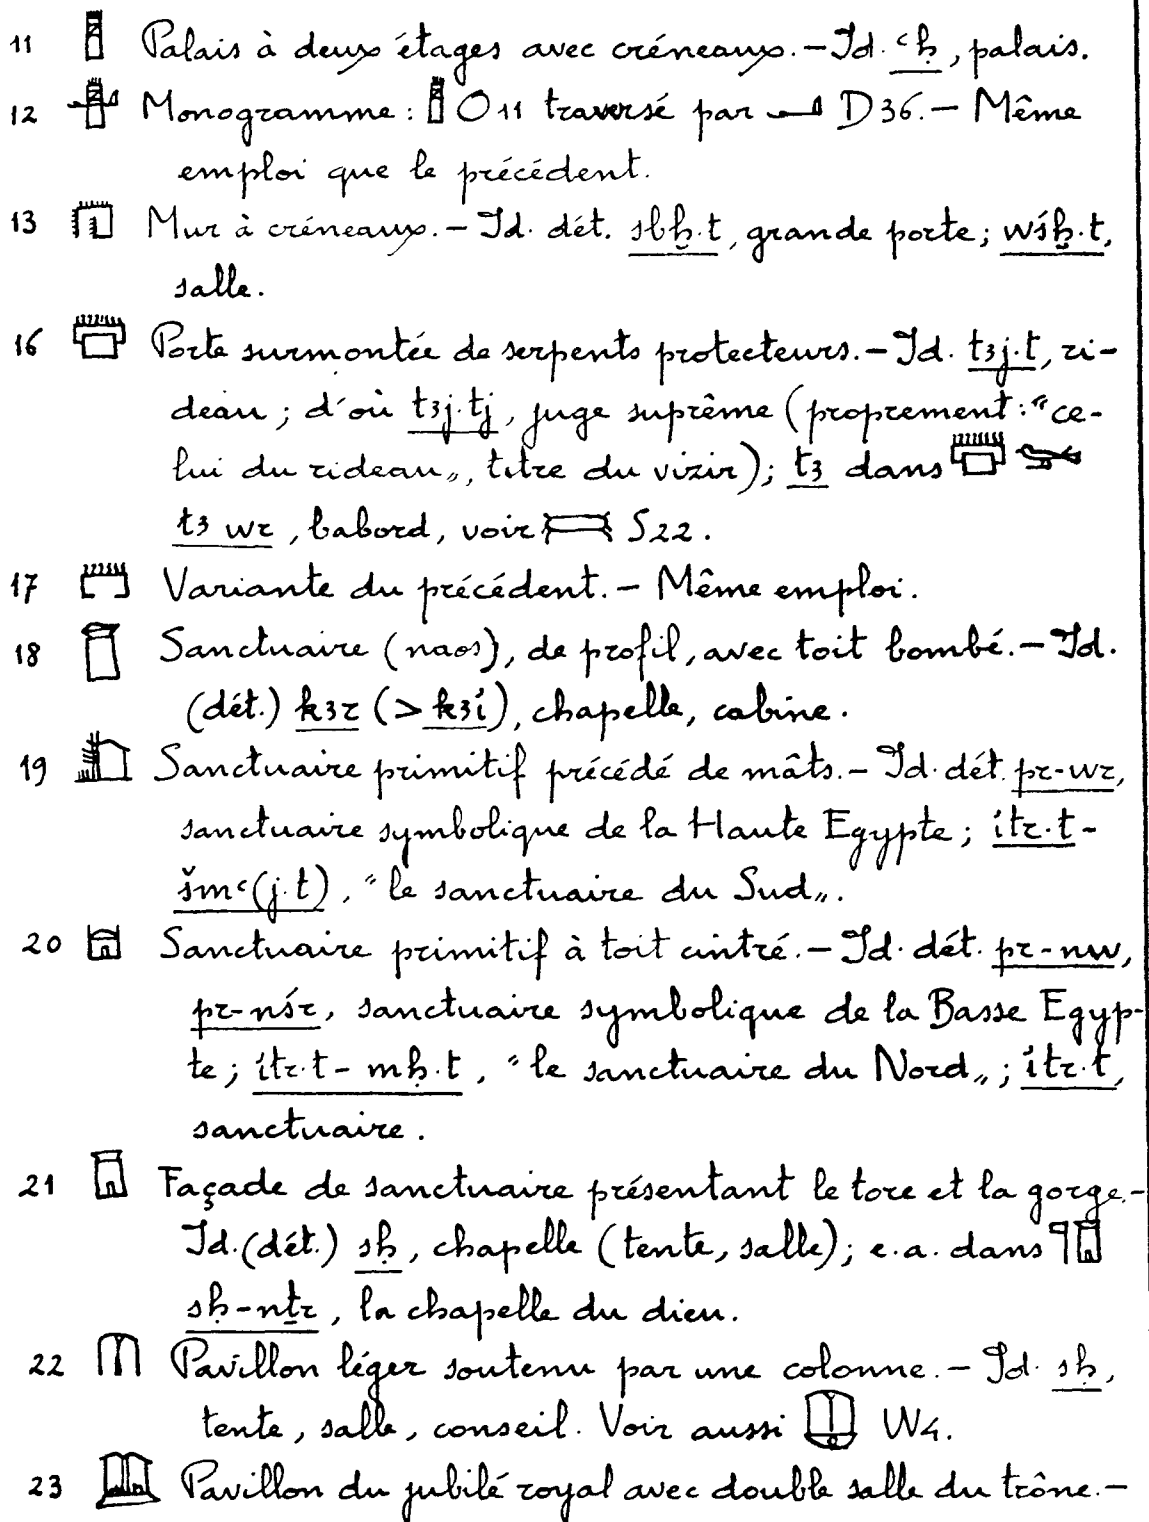 11 𓉥 Palais à deux étages avec créneaux. – Id. ꜥḥ, palais.
12 𓉦 Monogramme : 𓉥 O11 traversé par 𓂝 D36. – Même
emploi que le précédent.
13 𓉧 Mur à créneaux. – Id. dét. sbḫ.t, grande porte; wśḫ.t,
salle.
16 𓉪 Porte surmontée de serpents protecteurs. – Id. tꜣj.t, ri-
deau; d'où tꜣj.tj, juge suprême (proprement : "ce-
lui du rideau„, titre du vizir); tꜣ dans 𓉪𓅨
tꜣ wr, babord, voir 𓋨 S22.
17 𓉫 Variante du précédent. – Même emploi.
18 𓉬 Sanctuaire (naos), de profil, avec toit bombé. – Id.
(dét.) kꜣr (> kꜣí), chapelle, cabine.
19 𓉭 Sanctuaire primitif précédé de mâts. – Id. dét. pr-wr,
sanctuaire symbolique de la Haute Egypte; ítr.t-
šmꜥ(j.t), "le sanctuaire du Sud„.
20 𓉯 Sanctuaire primitif à toit cintré. – Id. dét. pr-nw,
pr-nśr, sanctuaire symbolique de la Basse Egyp-
te; ítr.t-mḥ.t, "le sanctuaire du Nord„; ítr.t,
sanctuaire.
21 𓉱 Façade de sanctuaire présentant le tore et la gorge. –
Id. (dét.) sḥ, chapelle (tente, salle); e.a. dans 𓊹𓉱
sḥ-nṯr, la chapelle du dieu.
22 𓉲 Pavillon léger soutenu par une colonne. – Id. sḥ,
tente, salle, conseil. Voir aussi 𓎲 W4.
23 𓉳 Pavillon du jubilé royal avec double salle du trône. –